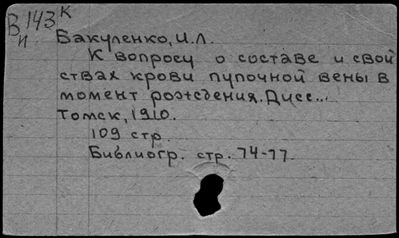 В 143 К
И
Бакуленко, И.Л.
К вопросу о составе и свой
ствах крови пупочной вены в
момент рождения. Дисс...
Томск, 1910.
109 стр.
Библиогр. стр. 74-77.